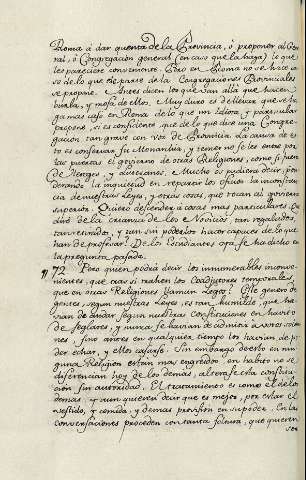 Roma à dar quenta de la Provincia, ò proponer al Ge
neral, ò Congregacion general (en caso que la haya) lo que
les pareciere conveniente. Pero en Roma no se hace ca
so de lo que de parte de la Congregaciones Provinciales
se propone. Antes dicen los que van allà que hacen
burla, y mofa de ellos. Muy duro es de llevar que se ha
ga mas caso en Roma de lo que un Idiota, y particular
propone, si es confidente, que de lo que dice una Congre
gacion tan grave con voz de Provincia. La causa de es
to es conservar su Monarchia, y temer no se les entre por
las puertas el govierno de otras Religiones, como si fuera
de Hereges, y Luteranos. Mucho se pudiera decir, pon
derando la inquietud en reparar los oficios la inconstan
cia de nuestras Leyes, y otras cosas, que tocan al govierno
superior. Quiero descender à cosas mas particulares. Que
dirè de la crianza de los Novicios, tan regalados,
tan retirados, y aun sin poderlos hacer capaces de lo que
han de professar? De los Escudiantes ya se ha dicho en
la pregunta pasada.
72 Pero quien podrà decir los innumerables inconve
nientes, que para si trahen los Coadjutores temporales,
que en otras Religiones llaman Legos? Este genero de
gentes segun nuestras Leyes, es tan humilde que ha
vian de andar segun nuestras constituciones en havito
de seglares, y nunca se havian de admitir à votos solem
nes, sino antes en qualquiera tiempo los havian de po
der echar, y ellos casarse. Sin embargo de esto en nin
guna Religion estàn mas engreidos, en habito no se
diferencian hoy de los demas, alterose esta constitu
cion sin autoridad. El tratamiento es como el de los
demas, y aun quieren decir que es mejor, por estàr el
vestido, y comida, y demas provision en su poder. En las
conversaciones proceden con tanta soltura, que quieren
ser